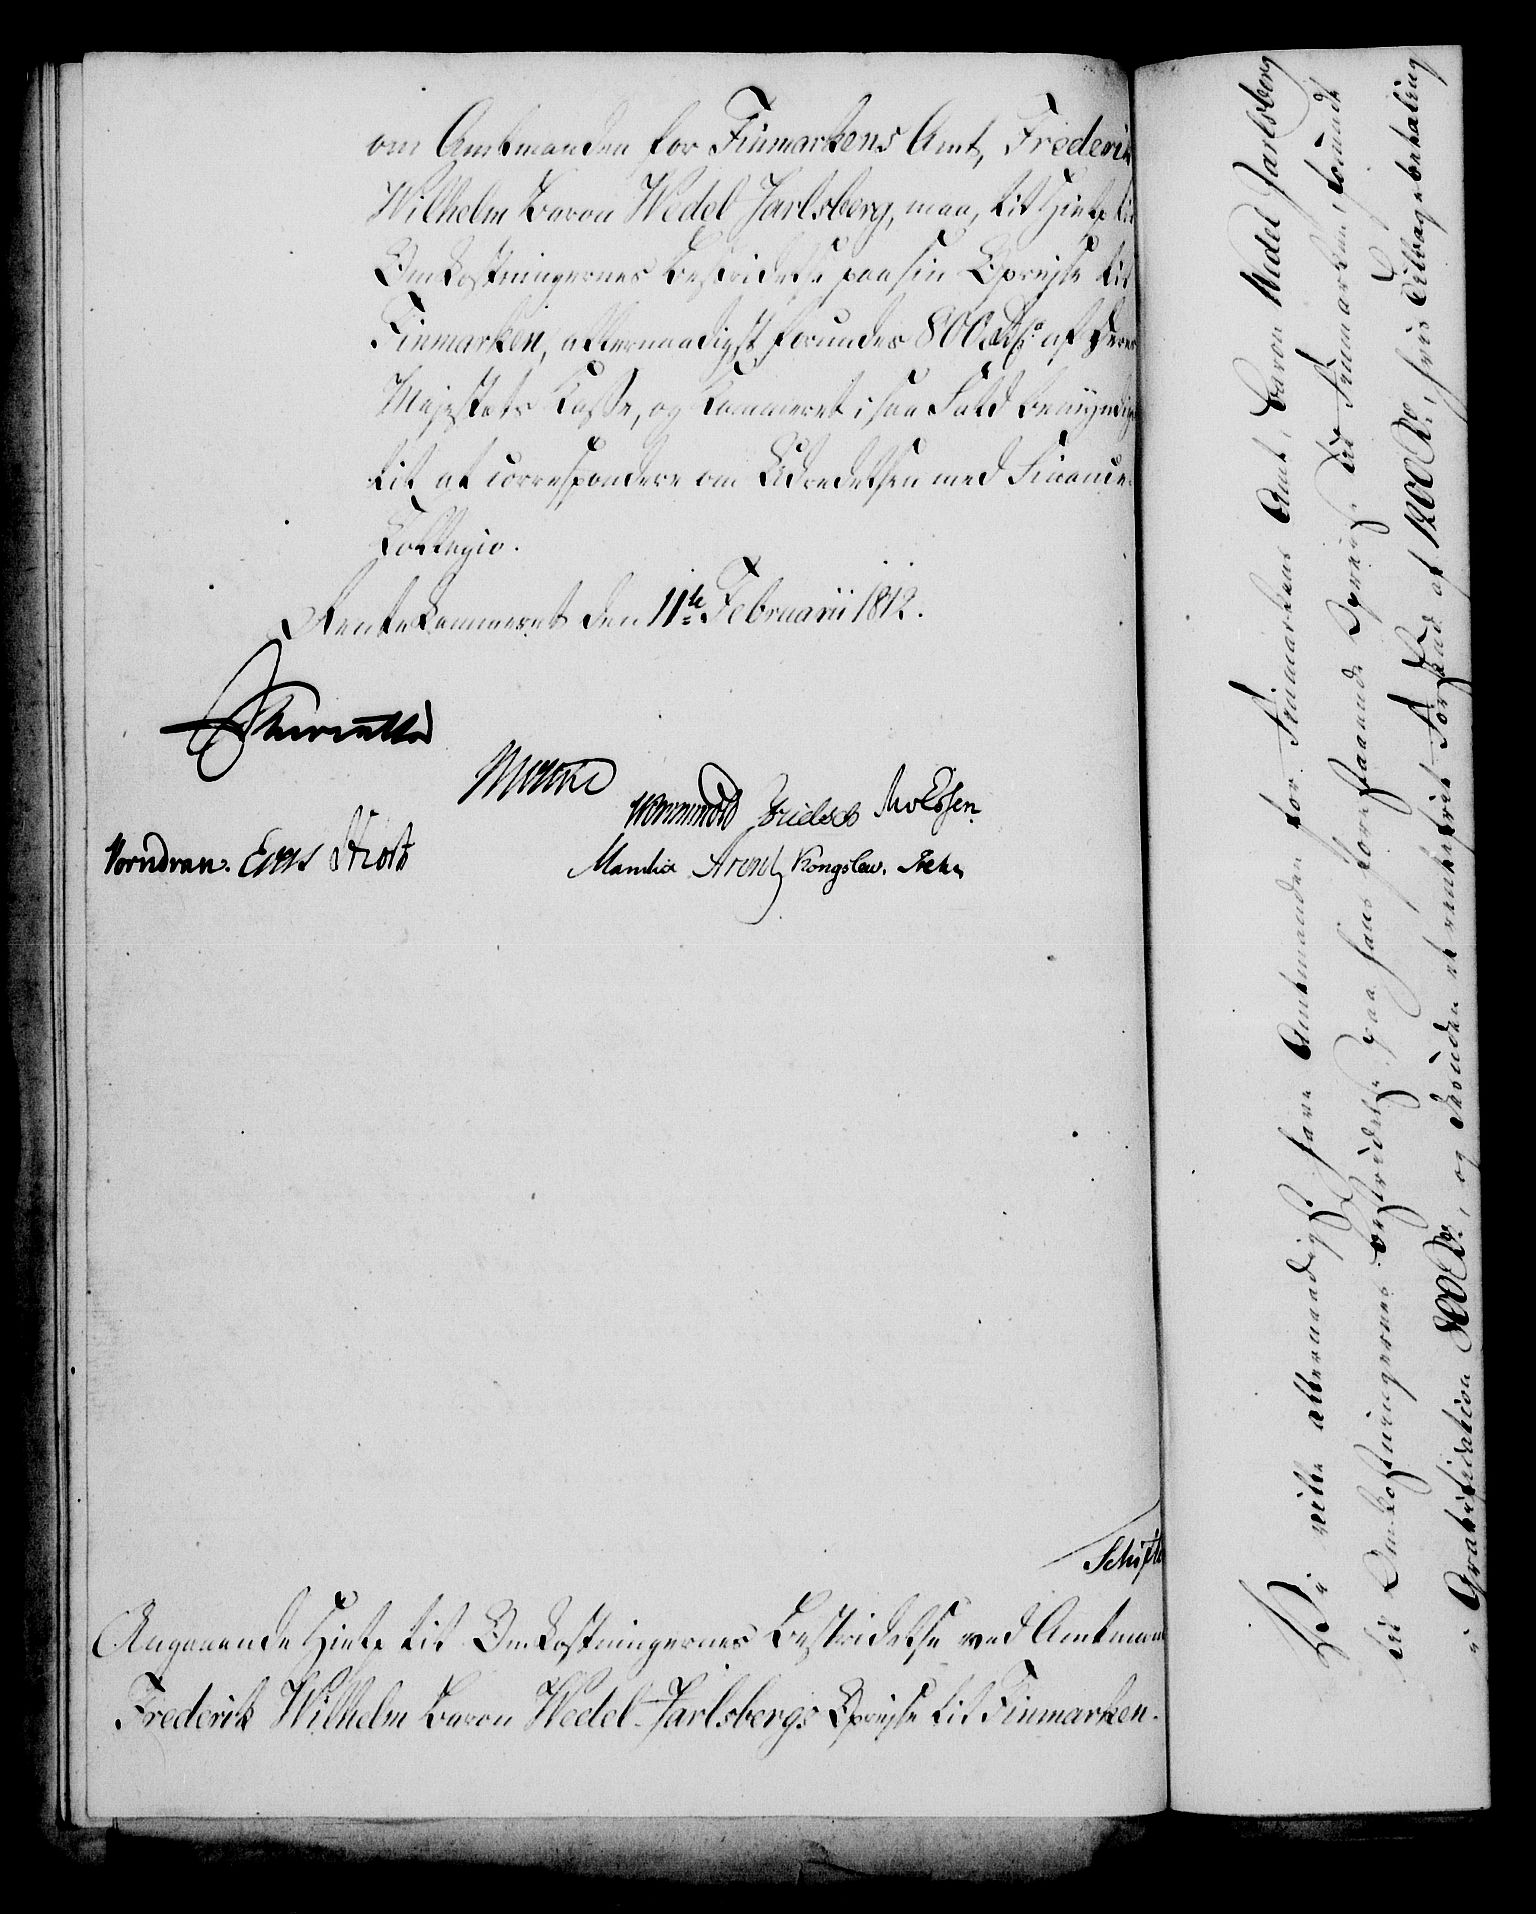 om Amtmanden for Finmarkens Amt, Frederik
Wilhelm Baron Wedel-Jarlsberg, maa, til Hielp til
Omkostningernes Bestridelse paa sin Opreyse til
Finmarken, allernaadigst forundes 800 Rd. af Deres
Majestæts Kasse, og Kammeret i saa Fald bemyndiges
til at correspondere om Udredelsen med Finance-
Collegio.
Rentekammeret den 11te Februarii 1812.
Vorndran.
Kongslew.
Schifte
Angaaende Hielp til Omkostningernes Bestridelse ved Amtmand
Frederik Wilhelm Baron Wedel-Jarlsbergs Opreyse til Finmarken.
Vi ville allernaadigst have Amtmanden for Finmarkens Amt, Baron Wedel Jarlsberg
til Omkostningernes Bestridelse paa hans forestaaende Opreise til Finmarken, forundt
i Gratification 800 Rd., og desuden et rentefrit Forskud af 1200 Rd., hvis Tilbagebetaling